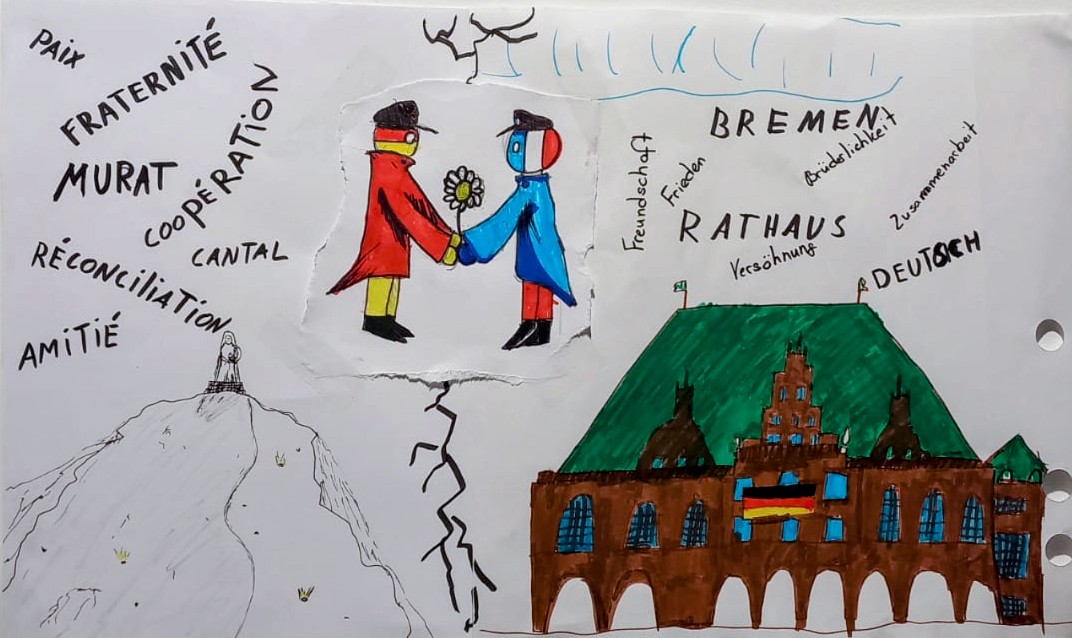 PAIX
FRATERNITÉ
MURAT
COOPÉRATION
CANTAL
RÉCONCILIATION
AMITIÉ
BREMEN
Freundschaft
Frieden
Brüderlichkeit
Zusammenarbeit
RATHAUS
Versöhnung
DEUTSCH